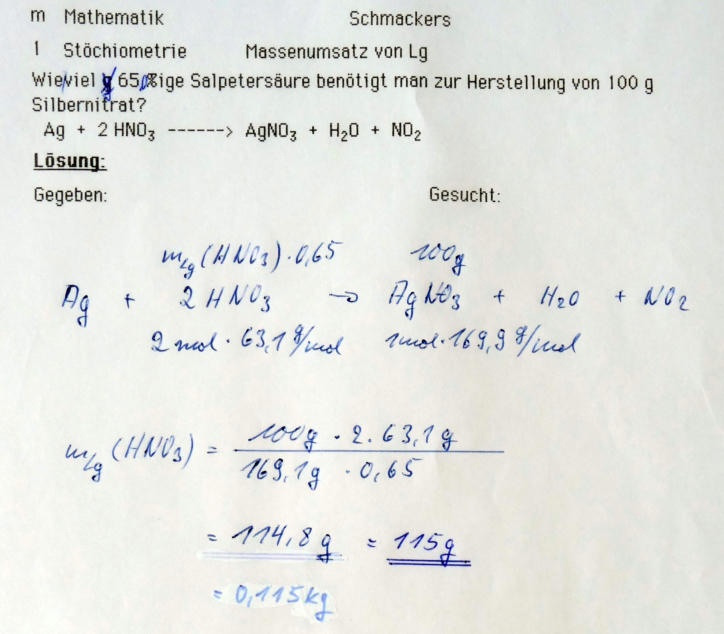 m Mathematik Schmackers
1 Stöchiometrie Massenumsatz von Lg
Wieviel g 65%ige Salpetersäure benötigt man zur Herstellung von 100 g
Silbernitrat?
Ag + 2 HNO₃ ------> AgNO₃ + H₂O + NO₂
Lösung:
Gegeben: Gesucht:
m_Lg (HNO₃) · 0,65 100g
Ag + 2 HNO₃ → AgNO₃ + H₂O + NO₂
2 mol · 63,1 g/mol 1mol · 169,9 g/mol
m_Lg (HNO₃) = 100g · 2 · 63,1 g
169,1g · 0,65
= 114,8 g = 115g
= 0,115kg